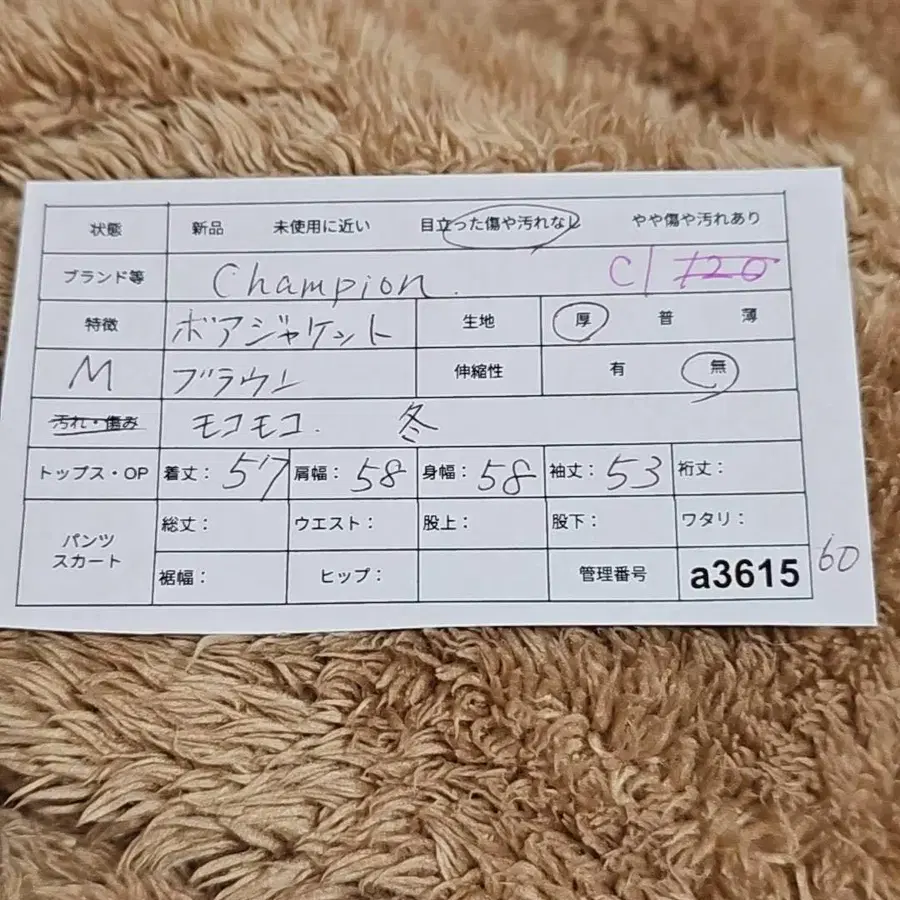 状態 新品 未使用に近い 目立った傷や汚れなし やや傷や汚れあり
ブランド等 Champion. C1 120
特徴 ボアジャケット 生地 厚 普 薄
M ブラウン 伸縮性 有 無
汚れ・傷み モコモコ. 冬
トップス・OP 着丈: 57 肩幅: 58 身幅: 58 袖丈: 53 裄丈:
パンツ スカート 総丈: ウエスト: 股上: 股下: ワタリ:
裾幅: ヒップ: 管理番号 a3615 60